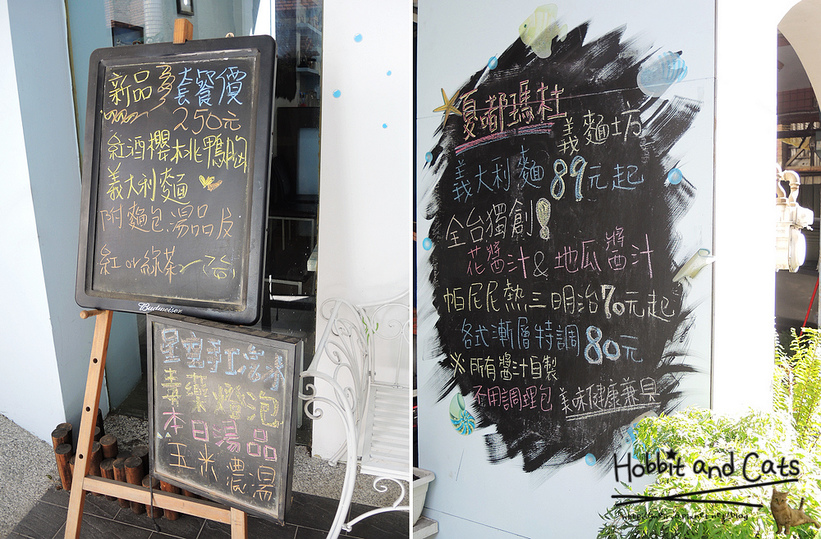 新品 套餐價
250元
紅酒櫻桃鴨胸
義大利麵
附麵包.湯品及
紅or綠茶
Budweiser
本日湯品
玉米濃湯
夏都瑪杜
義麵坊
義大利麵89元起
全台獨創!
花醬汁&地瓜醬汁
帕尼尼熱三明治70元起
各式漸層特調80元
※所有醬汁自製
不用調理包 美味健康兼具
Hobbit and Cats